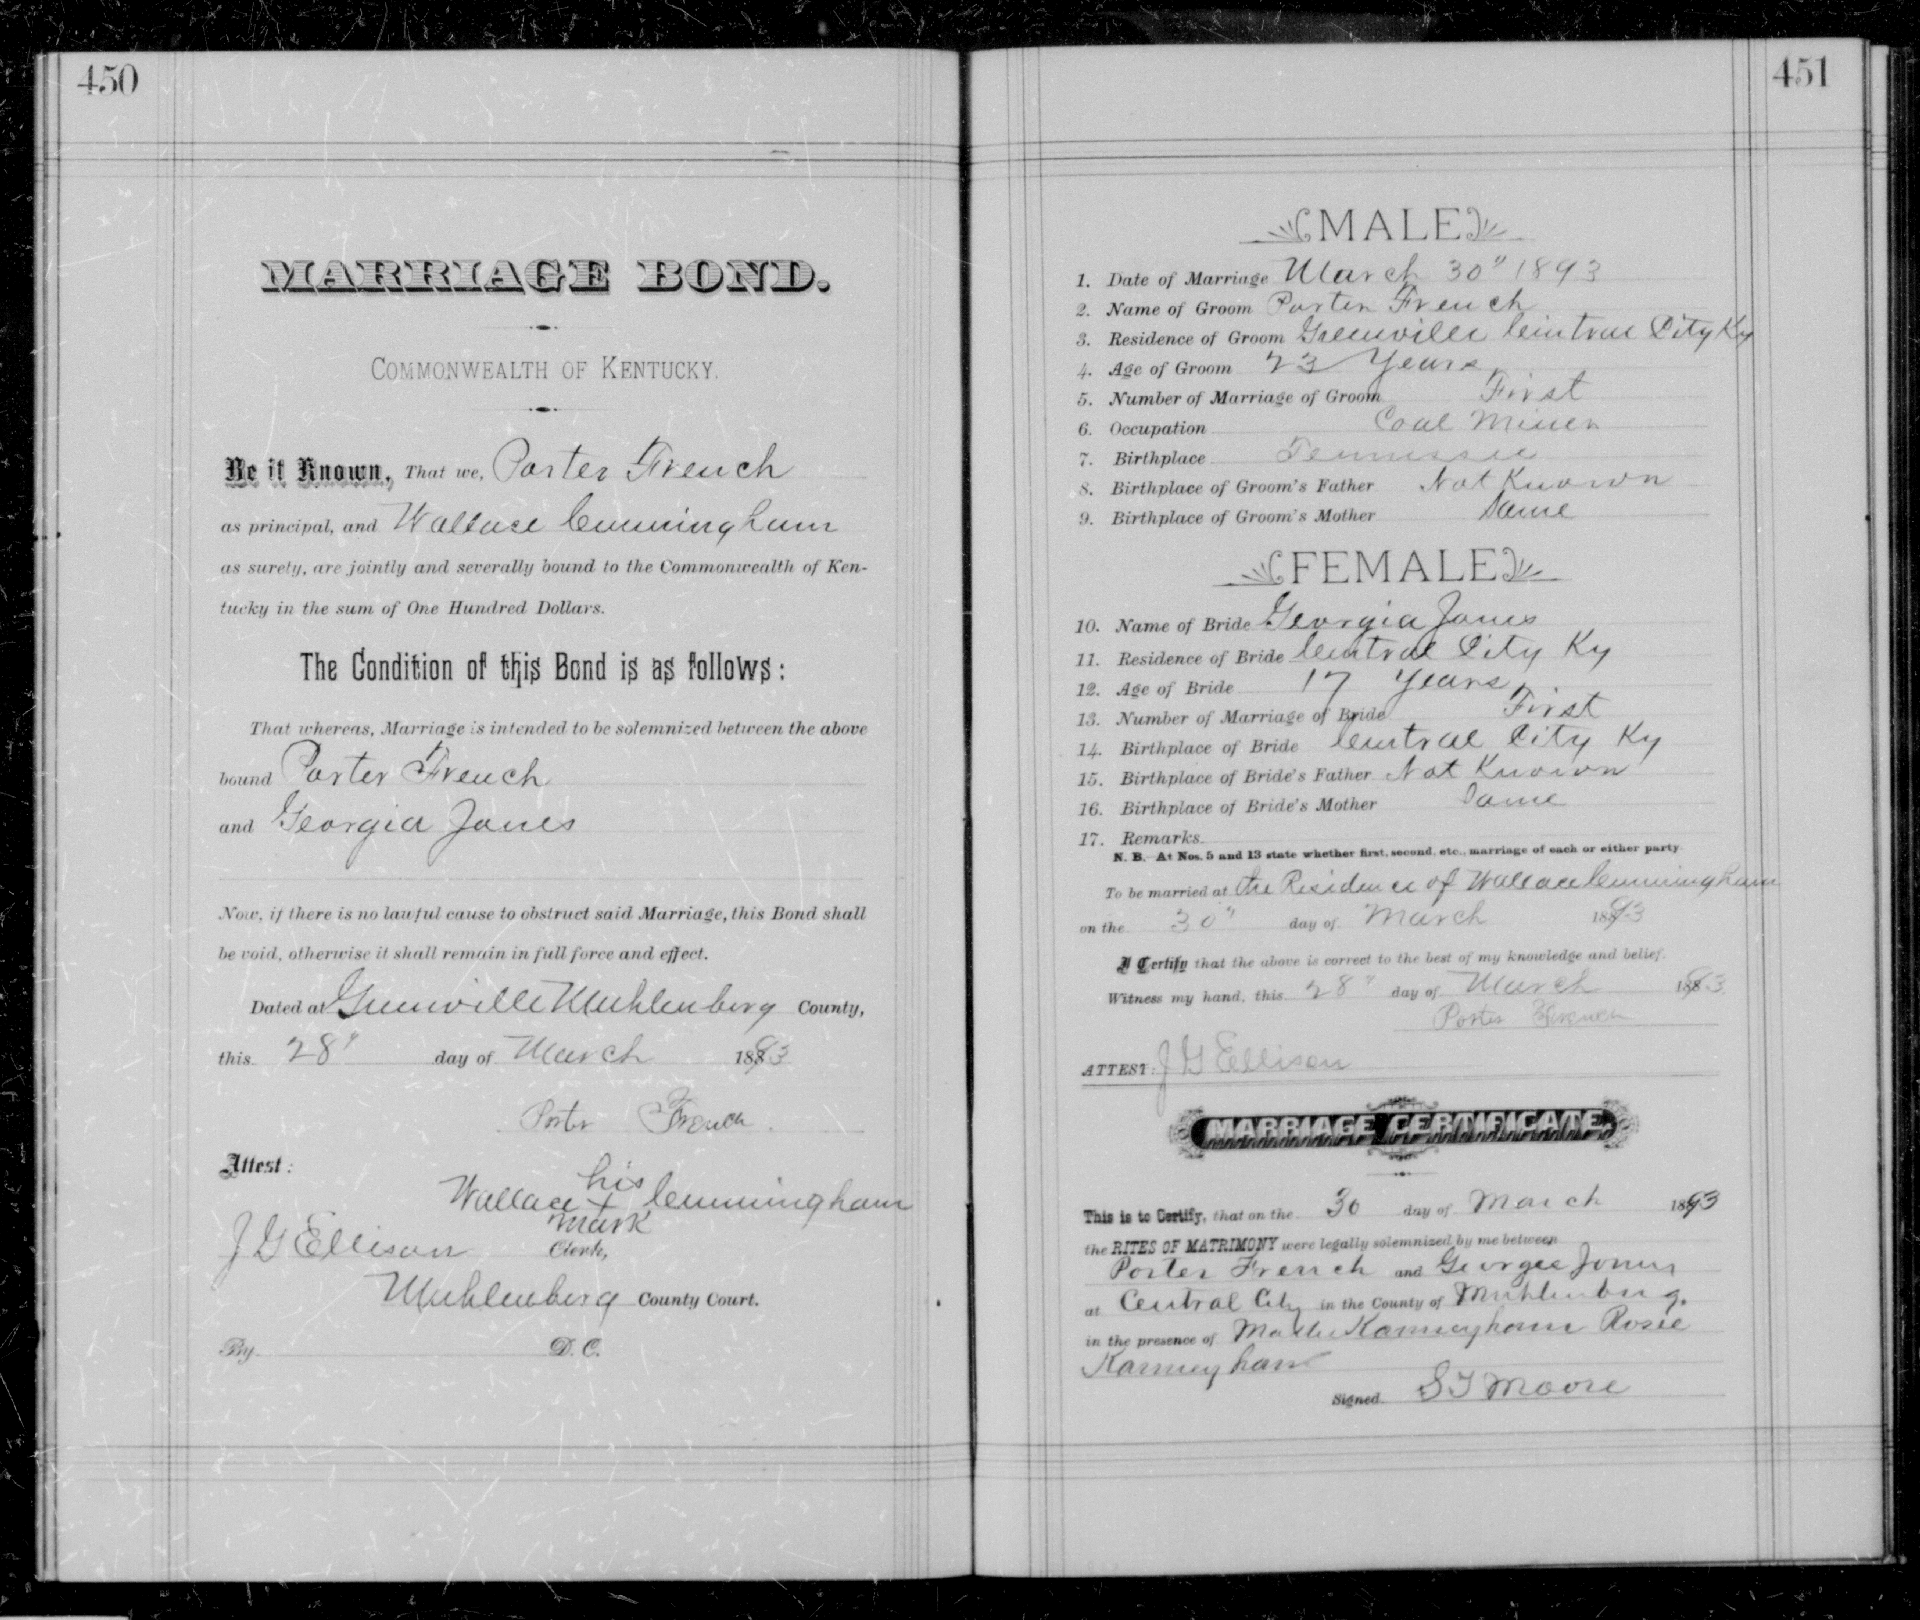 450
MARRIAGE BOND.
COMMONWEALTH OF KENTUCKY.
Be it Known, That we, Porter French
as principal, and Wallace Cunningham
as surety, are jointly and severally bound to the Commonwealth of Ken-
tucky in the sum of One Hundred Dollars.
The Condition of this Bond is as follows:
That whereas, Marriage is intended to be solemnized between the above
bound Porter French
and Georgia Jones
Now, if there is no lawful cause to obstruct said Marriage, this Bond shall
be void, otherwise it shall remain in full force and effect.
Dated at Greenville Muhlenberg County,
this 28" day of March 1893
Porter French
Attest:
his
Wallace X Cunningham
mark
J G Ellison Clerk,
Muhlenberg County Court.
By D. C.
451
MALE
1. Date of Marriage March 30" 1893
2. Name of Groom Porter French
3. Residence of Groom Greenville Central City Ky
4. Age of Groom 23 Years
5. Number of Marriage of Groom First
6. Occupation Coal Miner
7. Birthplace Tennessee
8. Birthplace of Groom's Father Not Known
9. Birthplace of Groom's Mother Same
FEMALE
10. Name of Bride Georgia Jones
11. Residence of Bride Central City Ky
12. Age of Bride 17 Years
13. Number of Marriage of Bride First
14. Birthplace of Bride Central City Ky
15. Birthplace of Bride's Father Not Known
16. Birthplace of Bride's Mother Same
17. Remarks
N. B. At Nos. 5 and 13 state whether first, second, etc., marriage of each or either party
To be married at the Residence of Wallace Cunningham
on the 30" day of March 1893
I Certify that the above is correct to the best of my knowledge and belief.
Witness my hand, this 28" day of March 1893
Porter French
ATTEST: J G Ellison
MARRIAGE CERTIFICATE.
This is to Certify, that on the 30 day of March 1893
the RITES OF MATRIMONY were legally solemnized by me between
Porter French and Georgee Jones
at Central City in the County of Muhlenburg.
in the presence of Rosie
Signed S T Moore